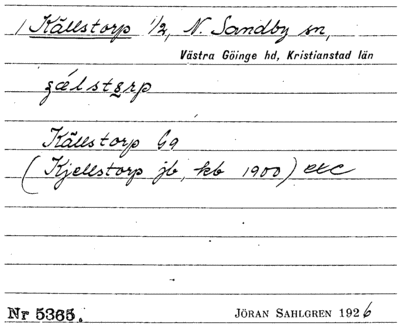 / Källstorp 1/2, N. Sandby sn,
Västra Göinge hd, Kristianstad län
Källstorp G9
(Kjellstorp jb, kb 1900) etc
Nr 5365.
JÖRAN SAHLGREN 1926